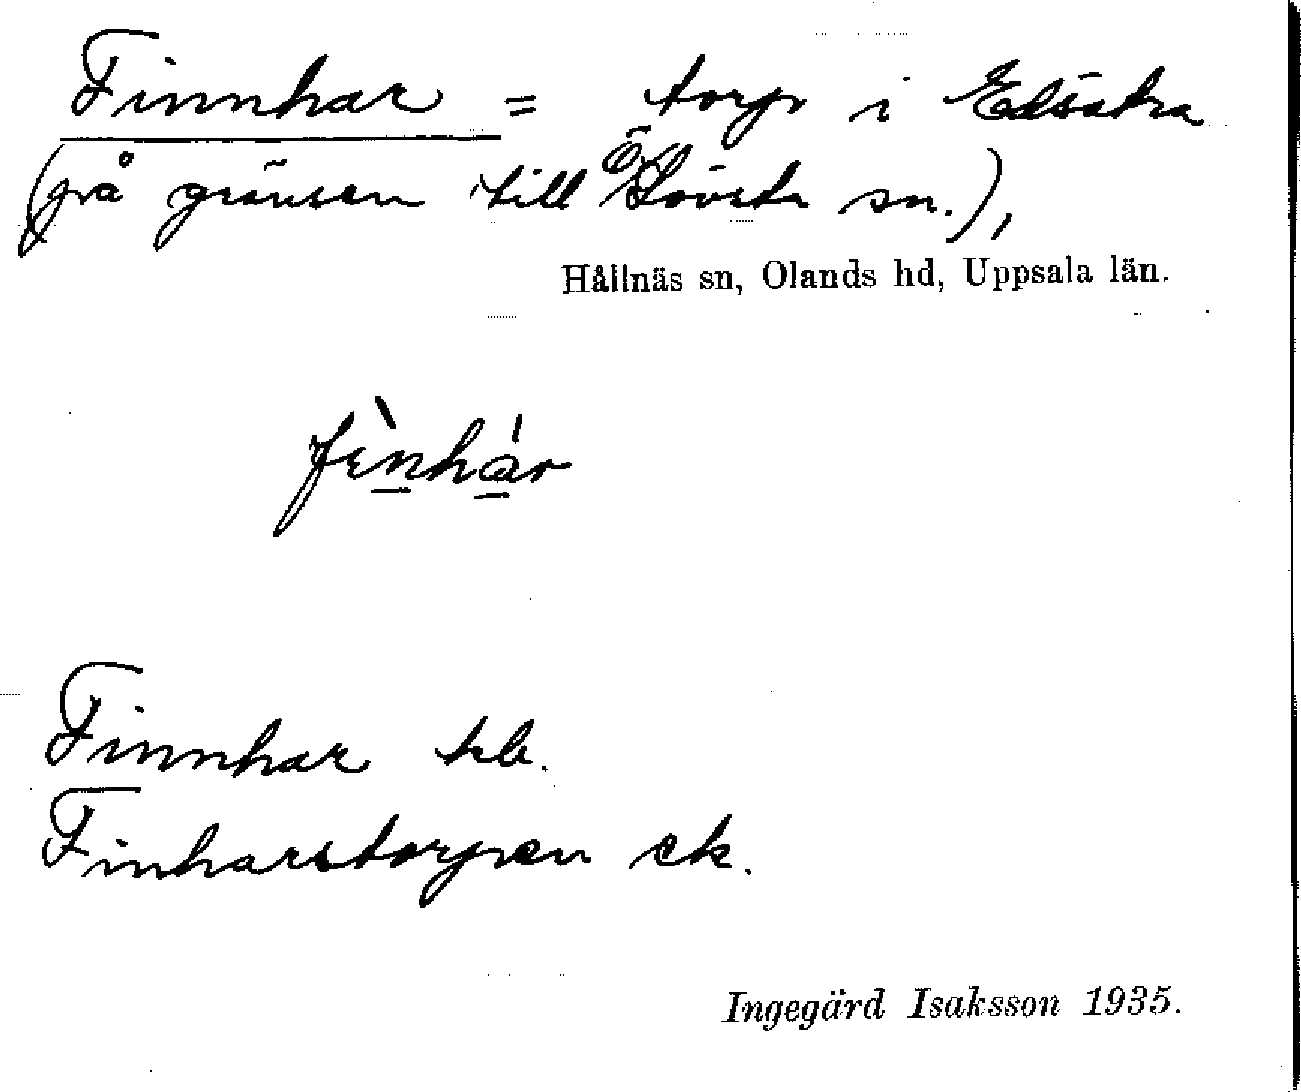 Finnhar = torp i Edsätra
(på gränsen till Ö Lövsta sn.),
Hållnäs sn, Olands hd, Uppsala län.
fìnhár
Finnhar tab.
Finharstorpen ek.
Ingegärd Isaksson 1935.